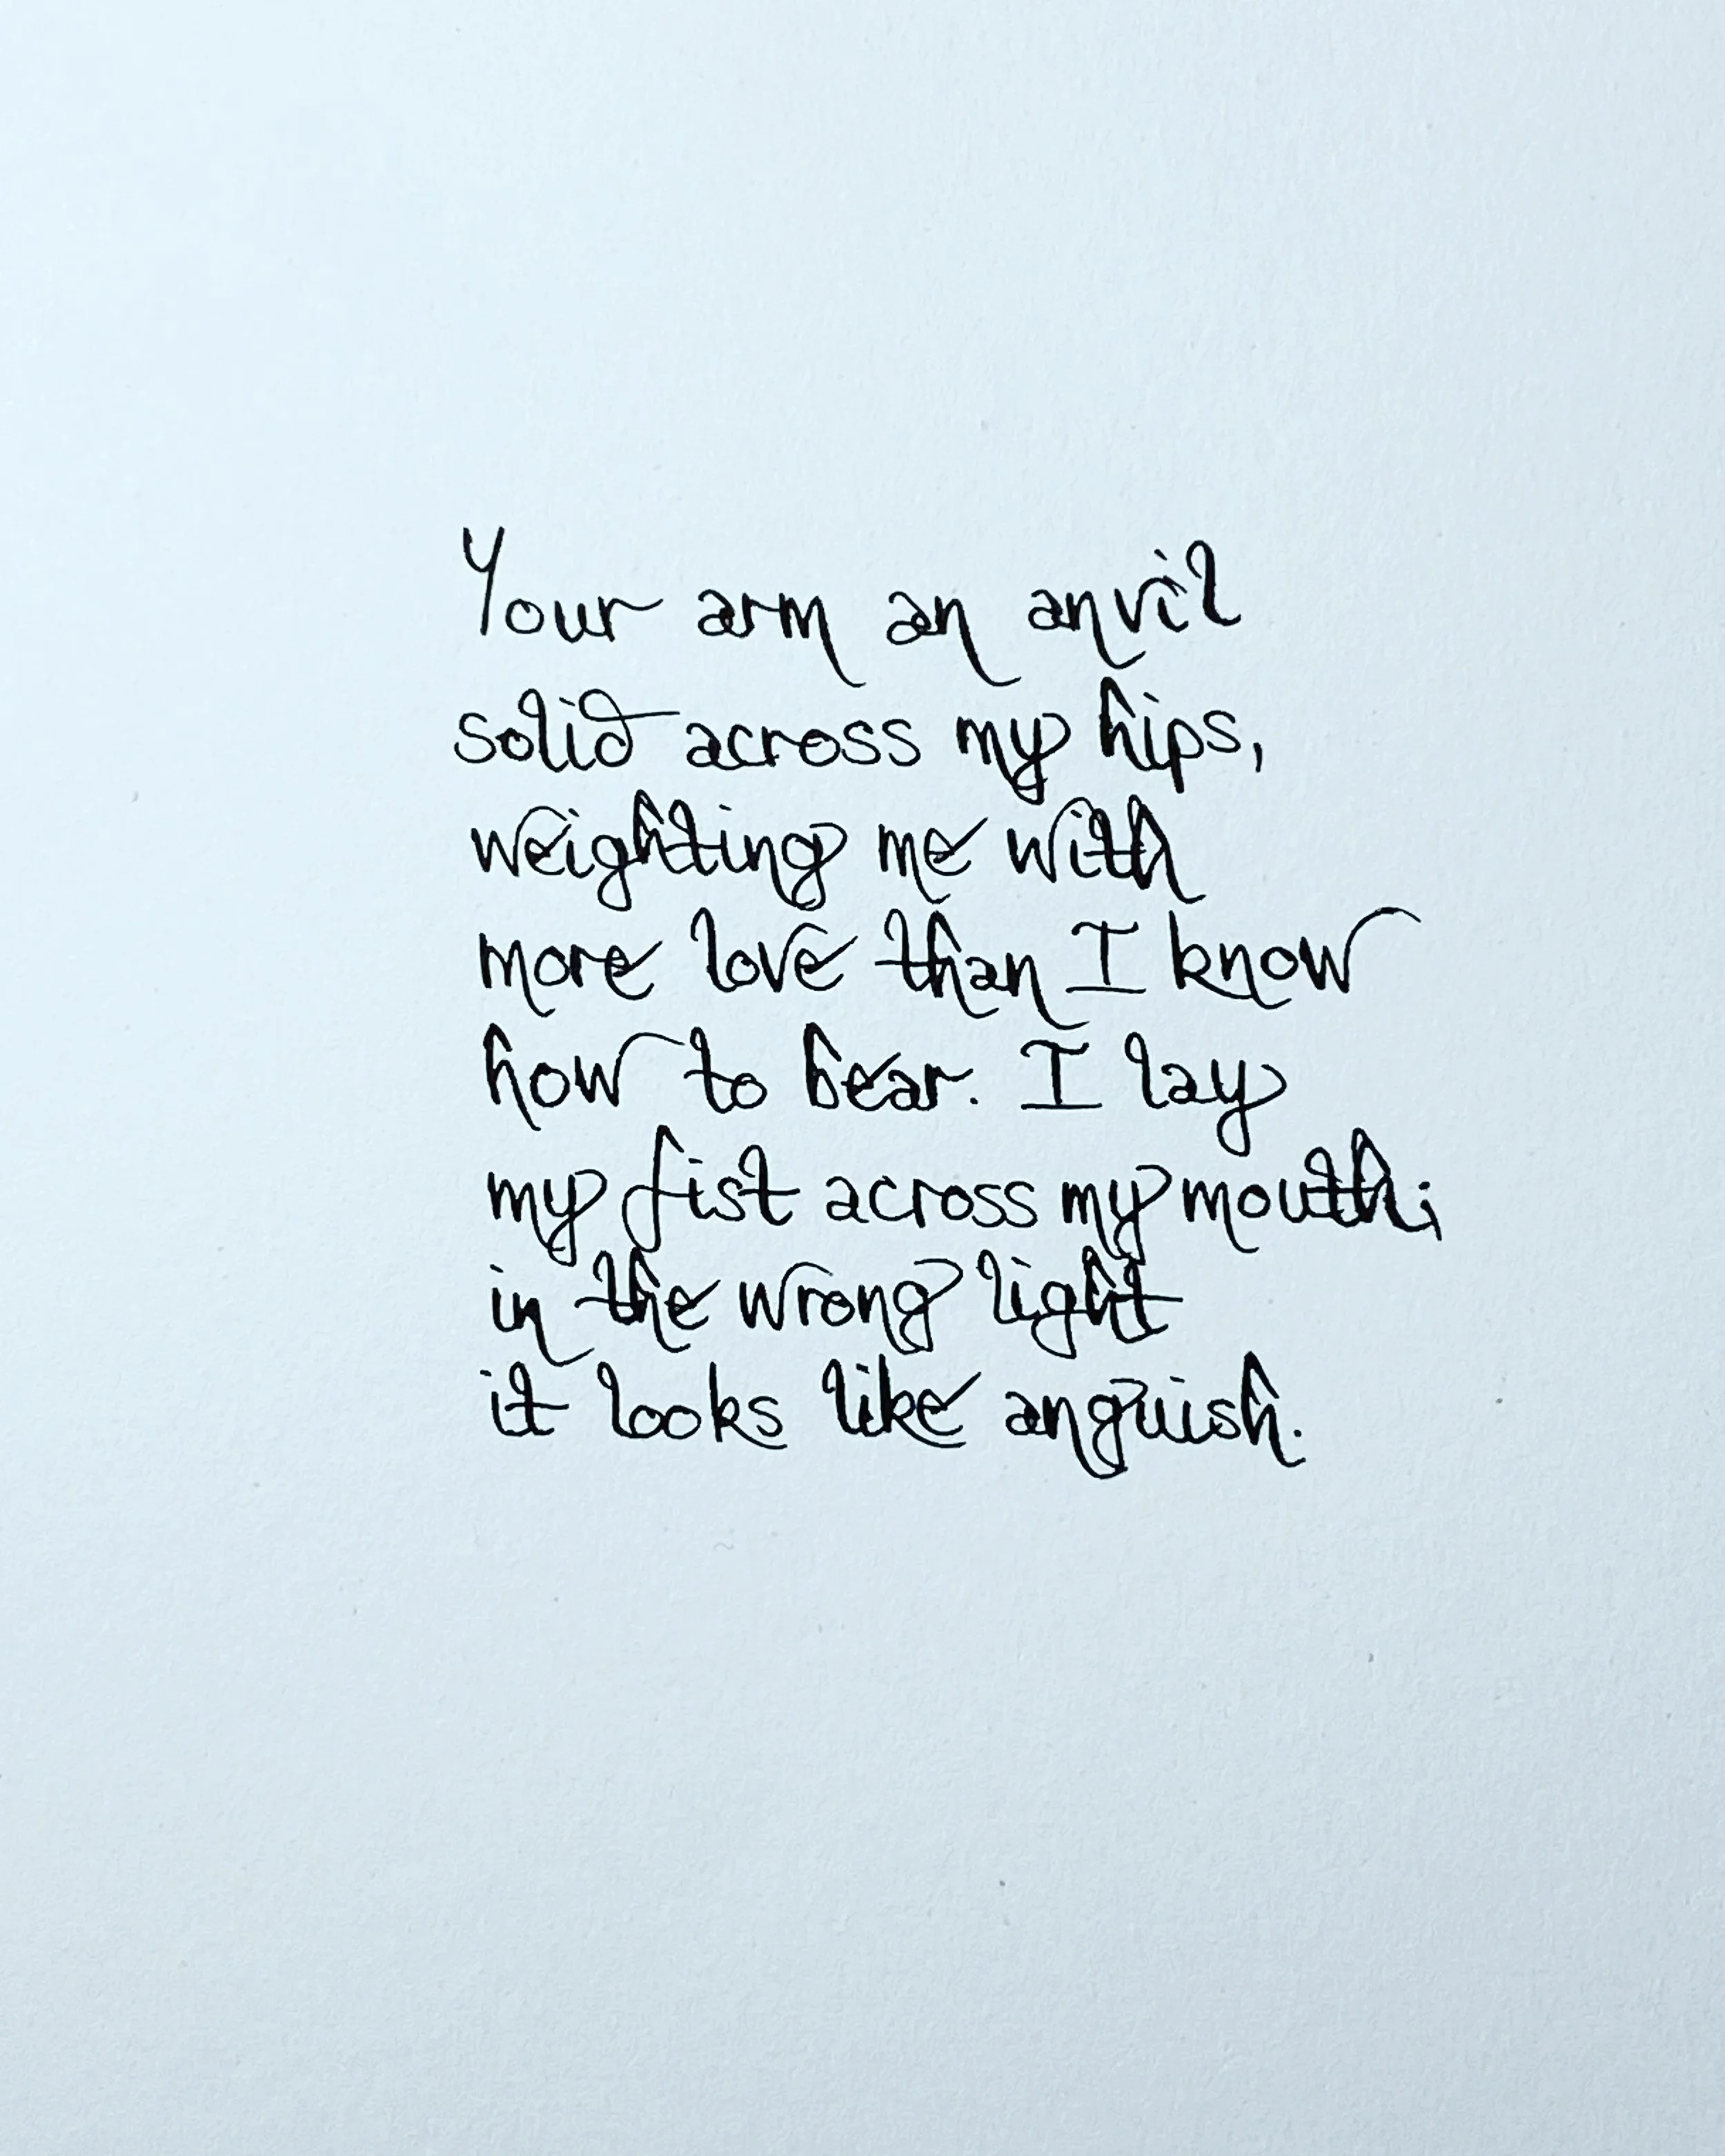 Your arm an anvil
solid across my hips,
weighting me with
more love than I know
how to bear. I lay
my fist across my mouth;
in the wrong light
it looks like anguish.